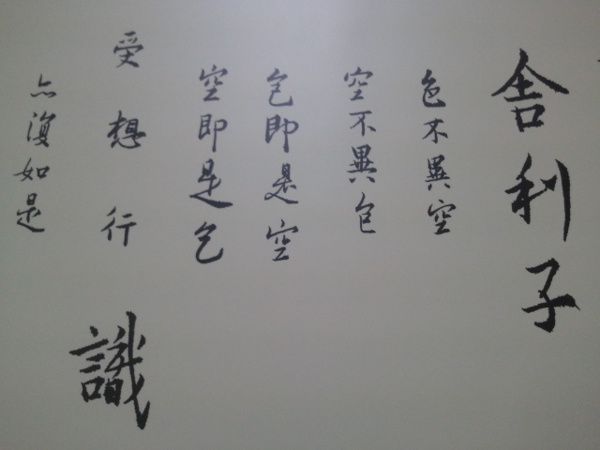 舍利子
色不異空
空不異色
色即是空
空即是色
受想行識
亦復如是